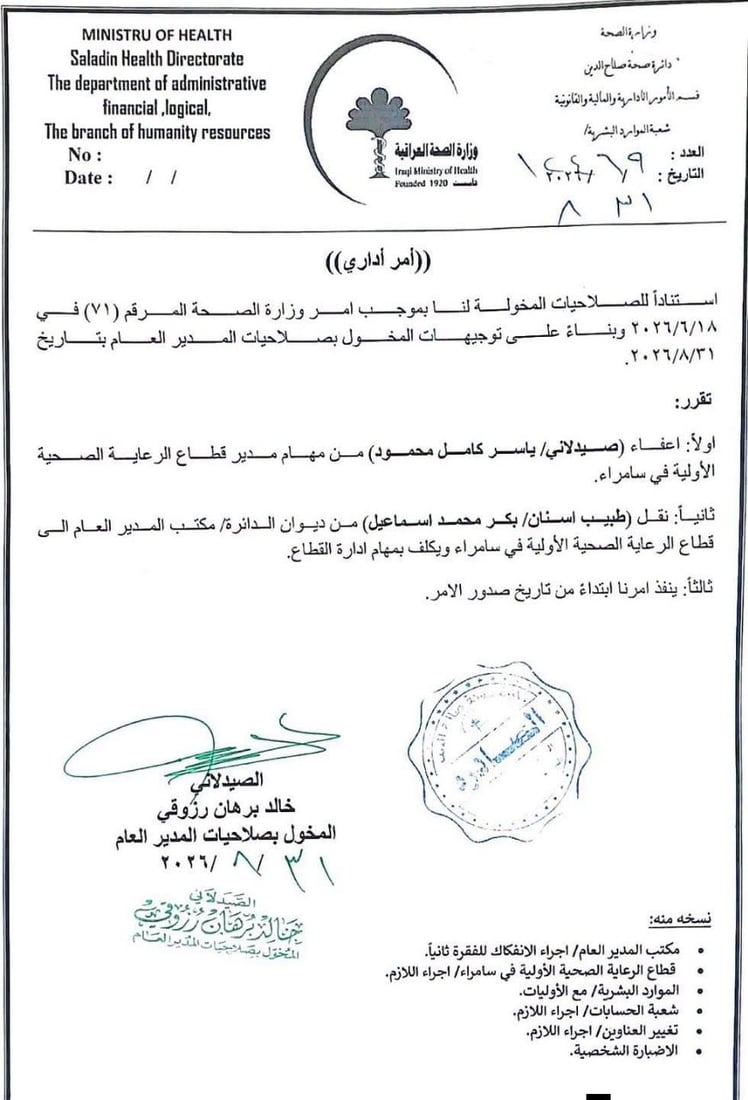 MINISTRU OF HEALTH
Saladin Health Directorate
The department of administrative
financial ,logical,
The branch of humanity resources
No :
Date : / /
وزارة الصحة العراقية
Iraqi Ministry of Health
Founded 1920 تأسست
وزارة الصحة
دائرة صحة صلاح الدين
قسم الأمور الأدارية والمالية والقانونية
شعبة الموارد البشرية/
العدد :
التاريخ : ٢٠٢٦/
٣١ ٨
((أمر أداري))
استناداً للصلاحيات المخولة لنا بموجب امر وزارة الصحة المرقم (٧١) في
٢٠٢٦/٦/١٨ وبناءً على توجيهات المخول بصلاحيات المدير العام بتاريخ
٢٠٢٦/٨/٣١.
تقرر:
اولاً: اعفاء (صيدلاني/ ياسر كامل محمود) من مهام مدير قطاع الرعاية الصحية
الأولية في سامراء.
ثانياً: نقل (طبيب اسنان/ بكر محمد اسماعيل) من ديوان الدائرة/ مكتب المدير العام الى
قطاع الرعاية الصحية الأولية في سامراء ويكلف بمهام ادارة القطاع.
ثالثاً: ينفذ امرنا ابتداءً من تاريخ صدور الامر.
الصيدلاني
خالد برهان رزوقي
المخول بصلاحيات المدير العام
٢٠٢٦/ ٨/ ٣١
الصيدلاني
خالد برهان رزوقي
المخول بصلاحيات المدير العام
نسخه منه:
• مكتب المدير العام/ اجراء الانفكاك للفقرة ثانياً.
• قطاع الرعاية الصحية الأولية في سامراء/ اجراء اللازم.
• الموارد البشرية/ مع الأوليات.
• شعبة الحسابات/ اجراء اللازم.
• تغيير العناوين/ اجراء اللازم.
• الاضبارة الشخصية.